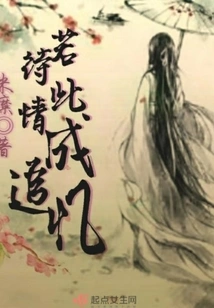 若此成忆
诗情追
著
起点女生网